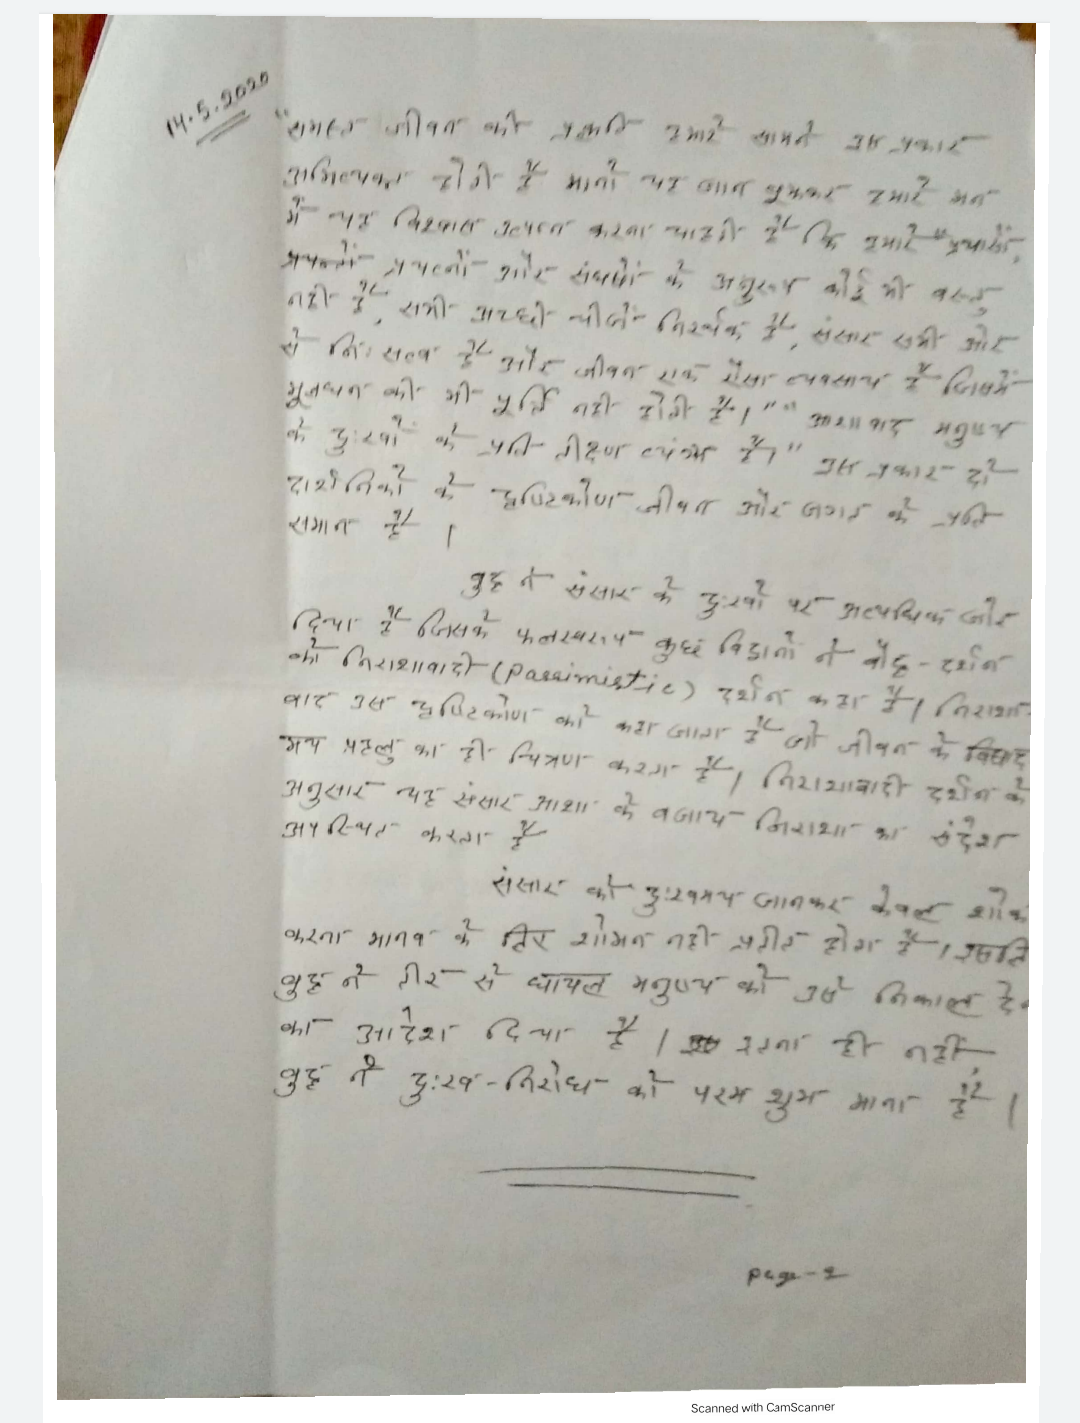 14.5.2020
"समस्त जीवन की प्रकृति हमारे सामने इस प्रकार
अभिव्यक्त होती है मानो यह जान बुझकर हमारे मन
में यह विश्वास उत्पन्न करना चाहती है कि हमारे "प्रयासों,
प्रयत्नों और संघर्षों के अनुरूप कोई भी वस्तु
नहीं है, सभी अच्छी चीजें निरर्थक है, संसार सभी ओर
से निःसत्व है और जीवन एक ऐसा व्यवसाय है जिसमें
मूलधन की भी पूर्ति नहीं होती है।" "आशावाद मनुष्य
के दुःखों के प्रति तीक्ष्ण व्यंग्य है।" इस प्रकार दो
दार्शनिकों के दृष्टिकोण जीवन और जगत के प्रति
समान है ।
बुद्ध ने संसार के दुःखों पर अत्यधिक जोर
दिया है जिसके फलस्वरूप कुछ विद्वानों ने बौद्ध-दर्शन
को निराशावादी (Passimistic) दर्शन कहा है। निराशा-
वाद उस दृष्टिकोण को कहा जाता है जो जीवन के विषाद
मय पहलु का ही चित्रण करता है। निराशावादी दर्शन के
अनुसार यह संसार आशा के बजाय निराशा का संदेश
उपस्थित करता है
संसार को दुःखमय जानकर केवल शोक
करना मानव के लिए शोभन नहीं प्रतीत होता है।
बुद्ध ने तीर से घायल मनुष्य को उसे निकाल दे
का आदेश दिया है । इतना ही नहीं,
बुद्ध ने दुःख-निरोध को परम शुभ माना है ।
page-2
Scanned with CamScanner